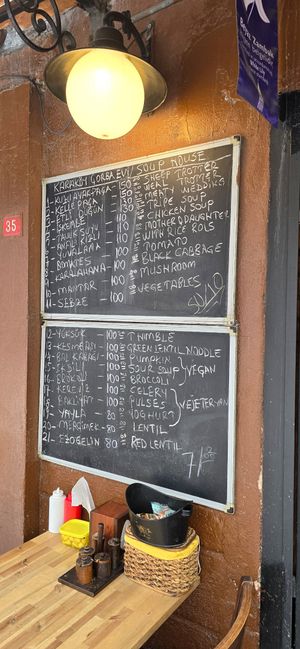 KARAKÖY ÇORBAEVİ / SOUP HOUSE
1 - KUZU AYAK PAÇA - 150 SHEEP TROTTER
2 - KELLE PAÇA - 150 MEAL TROTTER
3 - ETLİ DÜĞÜN - 130 MEATY WEDDING
5 - İŞKEMBE - 110 TRIPE SOUP
6 - TAVUK SUYU - 110 CHICKEN SOUP
7 - ANALI KIZLI - 110 MOTHER & DAUGHTER
YUVALAMA - WITH RICE ROLS
8 - DOMATES - 100 TOMATO
9 - KARALAHANA - 100 BLACK CABBAGE
10 - MANTAR - 100 MUSHROOM
11 - SEBZE - 100 VEGETABLES
12 - YÜKSÜK - 100 THIMBLE
13 - KESME AŞI - 100 GREEN LENTIL NOODLE
14 - BAL KABAĞI - 100 PUMPKIN
15 - EKŞİLİ - 100 SOUR SOUP
VEGAN
16 - BROKOLİ - 80 BROCCOLI
17 - KEREVİZ - 80 CELERY
18 - BAKLİYAT - 80 PULSES
VEJETERYAN
19 - YAYLA - 80 YOGHURT
20 - MERCİMEK - 80 LENTIL
21 - EZOGELİN 80 RED LENTIL
35